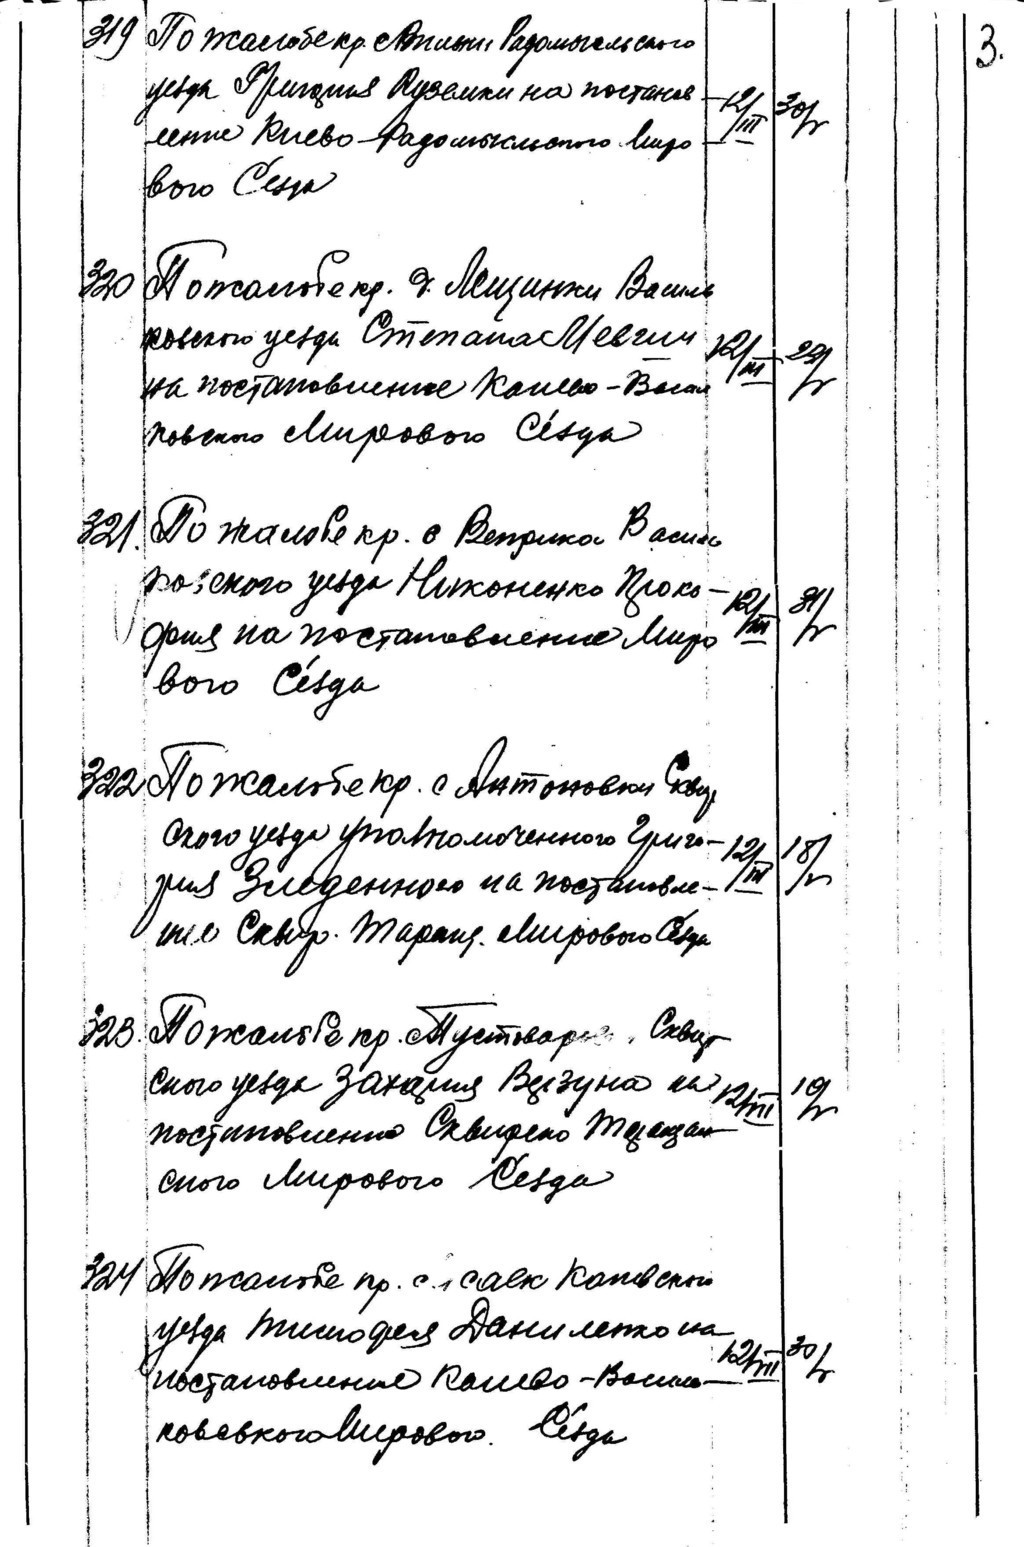 3.
319 По жалобе кр. Радомысльского
уезда Григория Куземки на постанов
ление Киево-Радомысльского Миро
вого Сезда
12/III 30/V
320 По жалобе кр. д. Лещинки Василь
ковского уезда Степана
на постановление Канево-Василь
ковского Мирового Сезда
12/III 29/V
321. По жалобе кр. с Веприка Василь
ковского уезда Никоненко Проко-
фия на постановление Миро
вого Сезда
12/III 31/V
322 По жалобе кр. с Антоновки Сквир
ского уезда уполномоченного Григо-
рия на постановле-
ние Сквир. Таращ. Мирового Сезда
12/III 18/V
323. По жалобе кр. Сквир
ского уезда Захария на
постановление Сквирско Таращан
ского Мирового Сезда
12/III 19/V
324 По жалобе кр. с. Каневского
уезда Тимофея Даниленко на
постановление Канево-Василь
ковского Мирового. Сезда
12/III 30/V